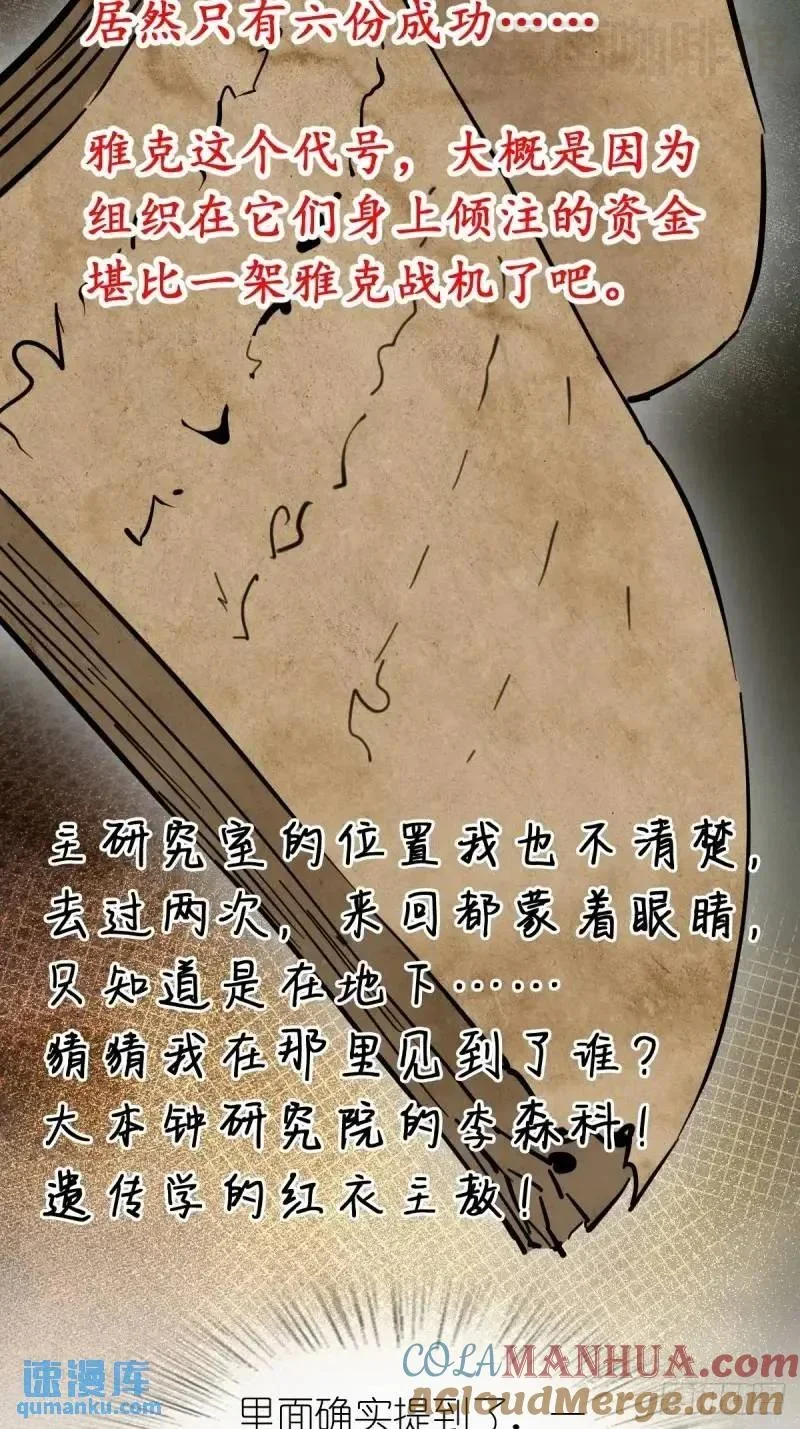 居然只有六份成功……
雅克这个代号，大概是因为
组织在它们身上倾注的资金
堪比一架雅克战机了吧。
主研究室的位置我也不清楚，
去过两次，来回都蒙着眼睛，
只知道是在地下……
猜猜我在那里见到了谁？
大本钟研究院的李森科！
遗传学的红衣主教！
COLAMANHUA.com
AcloudMerge.com
速漫库
qumanku.com
里面确实提到了，一